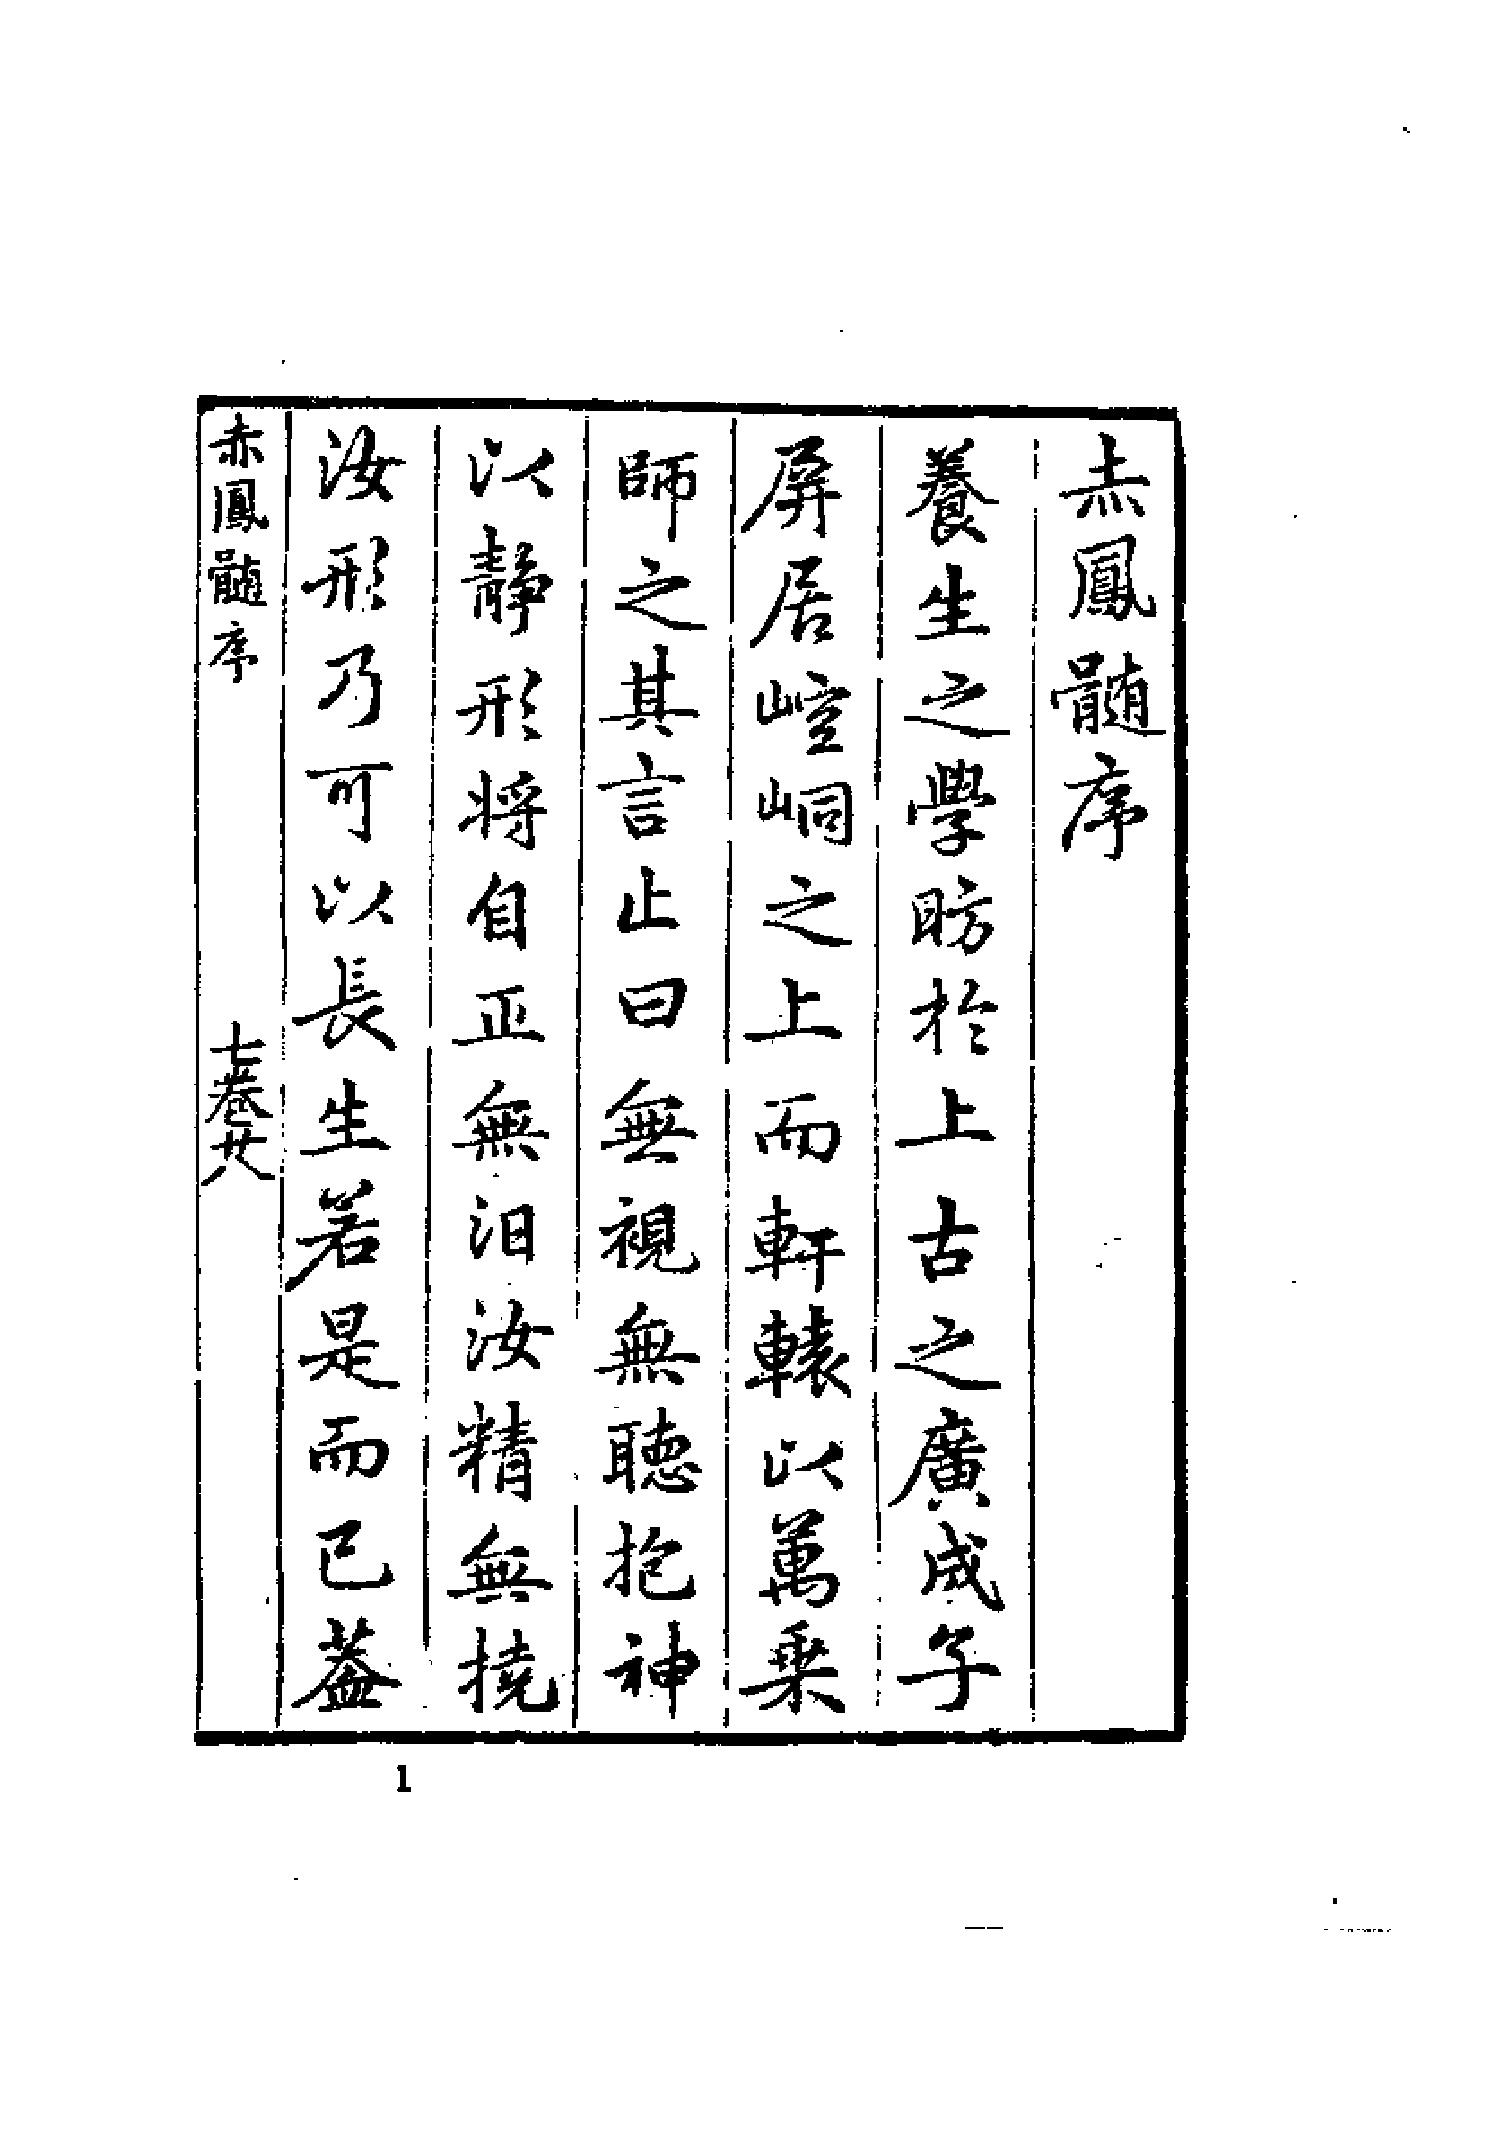 赤鳳髓序
養生之學昉於上古之廣成子
屏居崆峒之上而軒轅以萬乘
師之其言止曰無視無聽抱神
以静形將自正無汨汝精無撓
汝形乃可以長生若是而已蓋
赤鳳髓序
七卷廿八
1